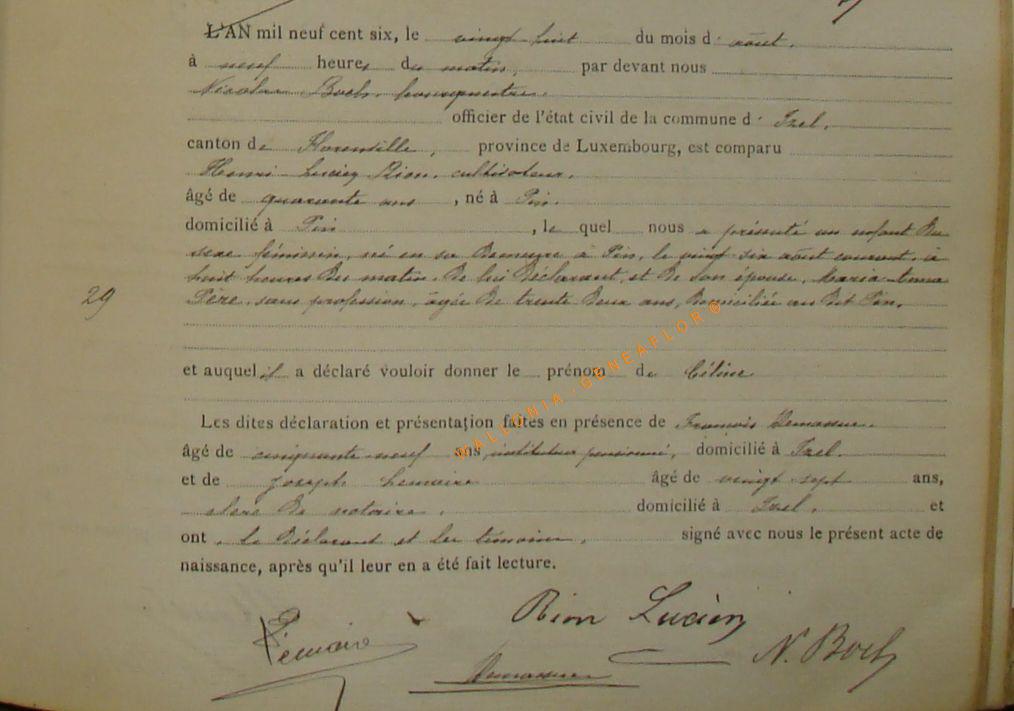 L'AN mil neuf cent six, le vingt huit du mois d' août.
à neuf heures du matin, par devant nous
Nicolas Boch, bourgmestre.
officier de l'état civil de la commune d' Izel.
canton de Florenville, province de Luxembourg, est comparu
Henri Lucien Rion, cultivateur,
âgé de quarante ans, né à Pin.
domicilié à Pin, le quel nous a présenté un enfant du
sexe féminin, né en sa demeure à Pin, le vingt six août courant, à
huit heures du matin, de lui déclarant, et de son épouse, Maria
29
sans profession, âgée de trente deux ans, domiciliée au dit Pin.
et auquel il a déclaré vouloir donner le prénom de Céline
Les dites déclaration et présentation faites en présence de François
âgé de cinquante neuf ans, instituteur pensionné, domicilié à Izel.
et de Joseph Lemaire âgé de vingt sept ans,
clerc de notaire, domicilié à Izel, et
ont, le déclarant et les témoins, signé avec nous le présent acte de
naissance, après qu'il leur en a été fait lecture.
Rion Lucien
Lemaire
N. Boch
WALLONIA.GENEAFLOR©